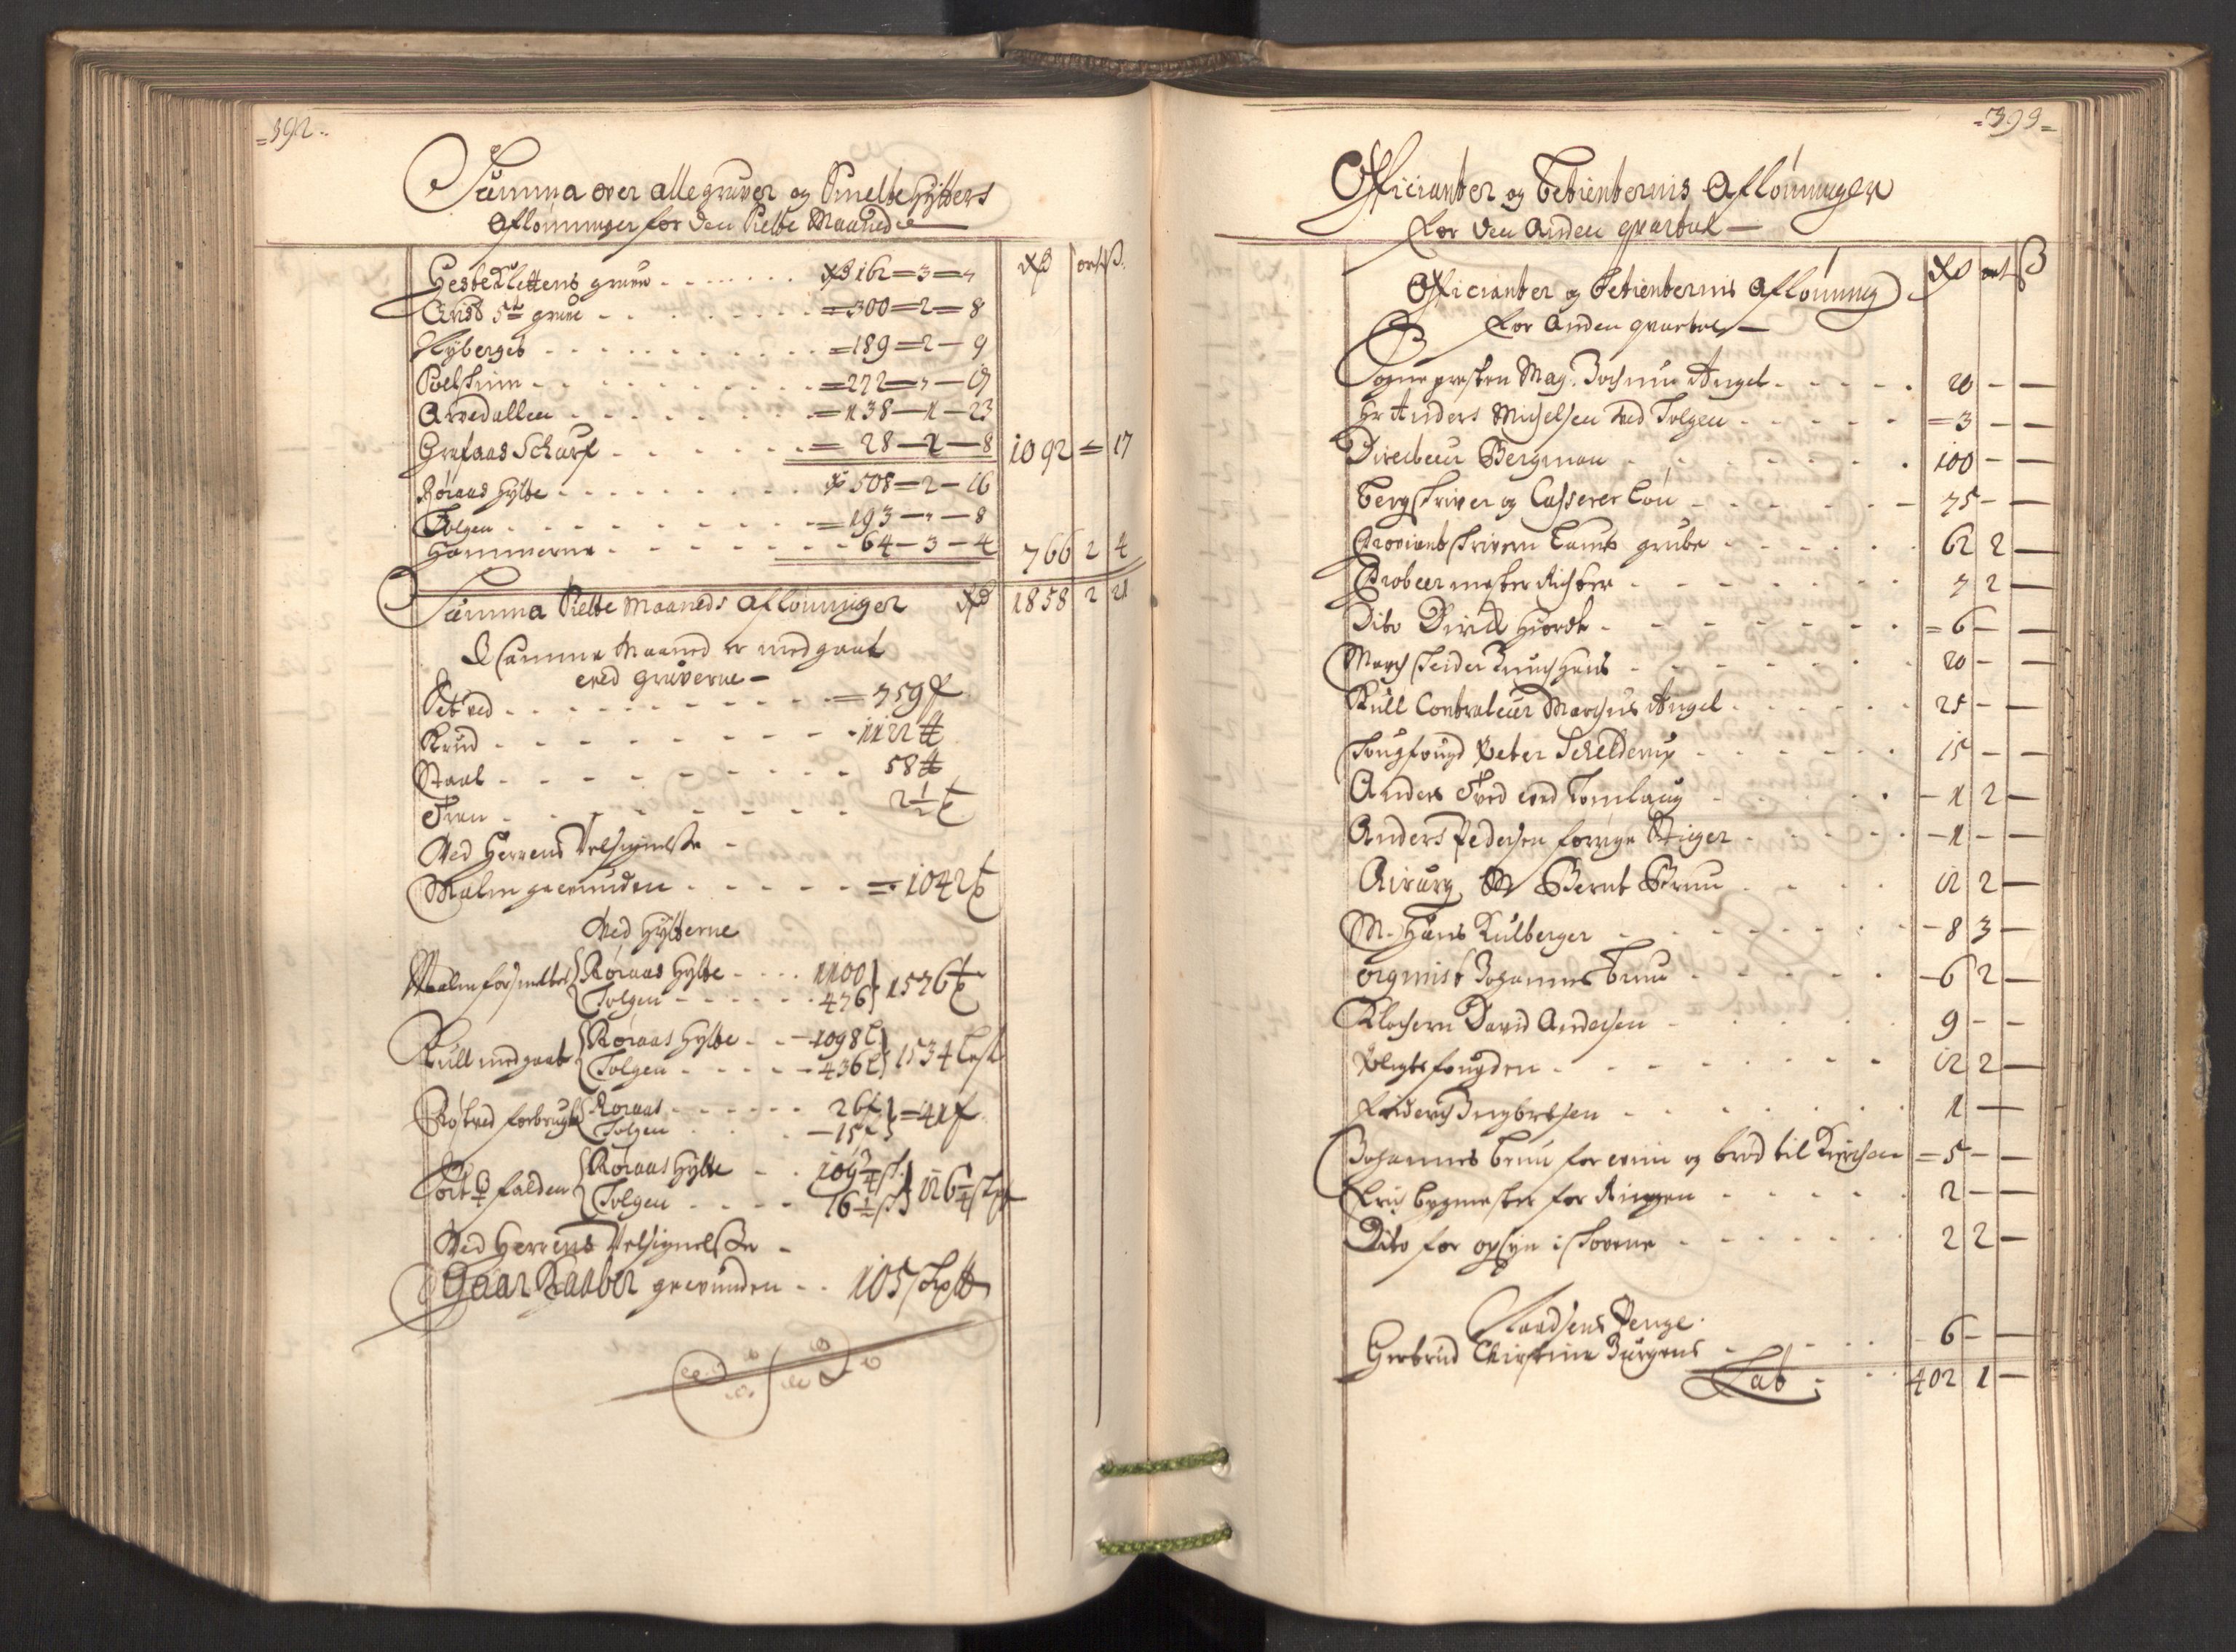 =392=
Summa over alle gruver og Smelte Hÿtters
Aflønninger for den Siette Maaned
Rd ort ß.
Hestekletens gruve - - - - Rd 162=3=„
Christ 5te gruve - - - - =300=2=8
Nÿberget - - - - =189=2-9
- - - - =272=„-17
Arvedallen - - - - =138-1-23
Grufaas Schurf - - - - = 28-1-8 1092 = 17
Røraas Hÿtte - - - - Rd 508=2-16
Tolgen - - - - =193-„-8
Hammerne - - - - 64-3-4 766 2 4
Summa Siette Maaneds Aflønninger Rd 1858 2 21
I Samme Maaned er medgaat
ved gruverne -
Setved - - - - =759 f
Krud - - - - 1122 ℔
Staal - - - - 58 ℔
Tran - - - - 2½ t
Ved Herrens Velsignelse -
Malm gewunden - - - - =1042 t
Ved Hÿtterne
Malm forsmeltet Røraas Hÿtte - - - - 1100
Tolgen - - - - 476 1576 t
Kull medgaat Røraas Hÿtte - - 1098 l
Tolgen - - - - 436 l 1534 lest
Røstved forbrugt Røraas - - - - 26 f
Tolgen - - - - 15 f =41 f
Sort ♀ falden Røraas Hÿtte - - 109¾ s℔
Tolgen - - - - 16½ s℔ 126¼ s℔
Ved Herrens Velsignelse -
Gaar Kaaber gewunden - - 105 Skp℔
=393=
Officianter og Betienternis Aflønninger
For den Anden qvartal -
Rd ort ß
Officianter og Betienternis Aflønning
for Anden qvartal -
Sogne presten Mag. Jochum Angel - - - - 20 - -
Hr Anders Michelsen ved Tolgen - - - - =3 - -
Directeur Bergman - - - - 100 - -
Bergskriver og Casserer Løn - - - - 75 - -
Proviantskrivern Lamb grube - - - - 62 2 -
Probeer mester Richter - - - - 7 2 -
Dito Hiorth - - - - =6 - -
Marchskeider - - - - 20 - -
Kull Contraleur Marchus Angel - - - - 25 - -
Skougfougd Peter Schelderup - - - - 15 - -
Anders ved - - - - 1 2 -
Anders Pedersen forrige Stiger - - - - 1 - -
Chirurg M Bernt Brun - - - - 12 2 -
M. Hans Kulberger - - - - 8 3 -
Organist Johannes Brun - - - - 6 2 -
Klochern David Andersen - - - - 9 - -
Pligtsfougden - - - - 12 2 -
Friderich Ingbretsen - - - - 1 - -
Johannes Brun for viin og brød til Kirchen =5 - -
Erich bygmester for Ringen - - - - 2 - -
Dito for opsyn i - - - - 2 2 -
Naadsens Penge.
Gertrud Christina Jürgens - - - - 6 - -
Lat: - - 402 1 -